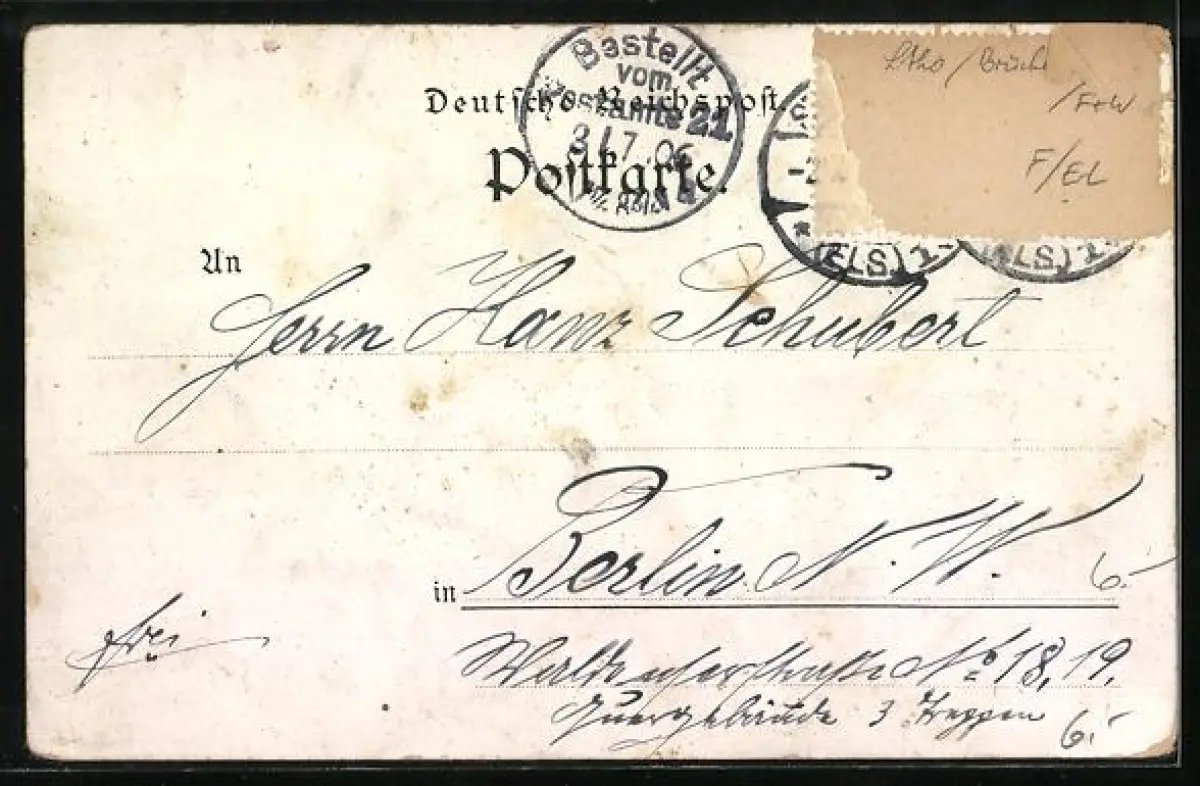 Bestellt
vom
Postamte 21
3/7.06
Deutsche Reichspost.
Postkarte.
(ELS)
(ELS)
Litho / Brücke
/F+W
F/EL
An
Herrn Hans Schubert
in Berlin N. W.
6.-
frei
No 18, 19.
Quergebäude 3 Treppen
6.-